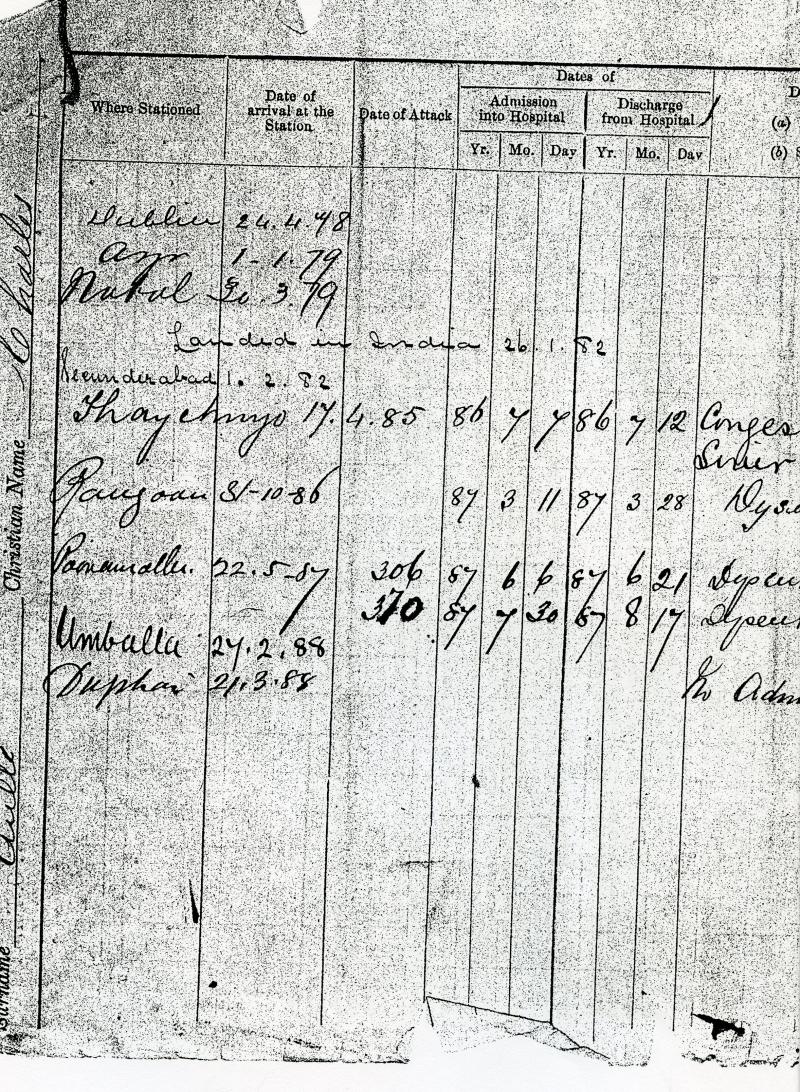 Dates of
Where Stationed Date of arrival at the Station Date of Attack Admission into Hospital Discharge from Hospital
(a)
(b) S
Yr. Mo. Day Yr. Mo. Day
Dublin 24.4.78
Ayr 1-1.79
Natal 30.3.79
Landed in India 26.1.82
Secunderabad 1.2.82
Thayetmyo 17.4.85 86 7 7 86 7 12 Conges
Liver
Rangoon 31-10-86 87 3 11 87 3 28 Dyse
22.5-87 306 87 6 6 87 6 21
370 87 7 30 87 8 17
Umballa 27.2.88
21.3.88
No Adm
Surname
Christian Name Charles